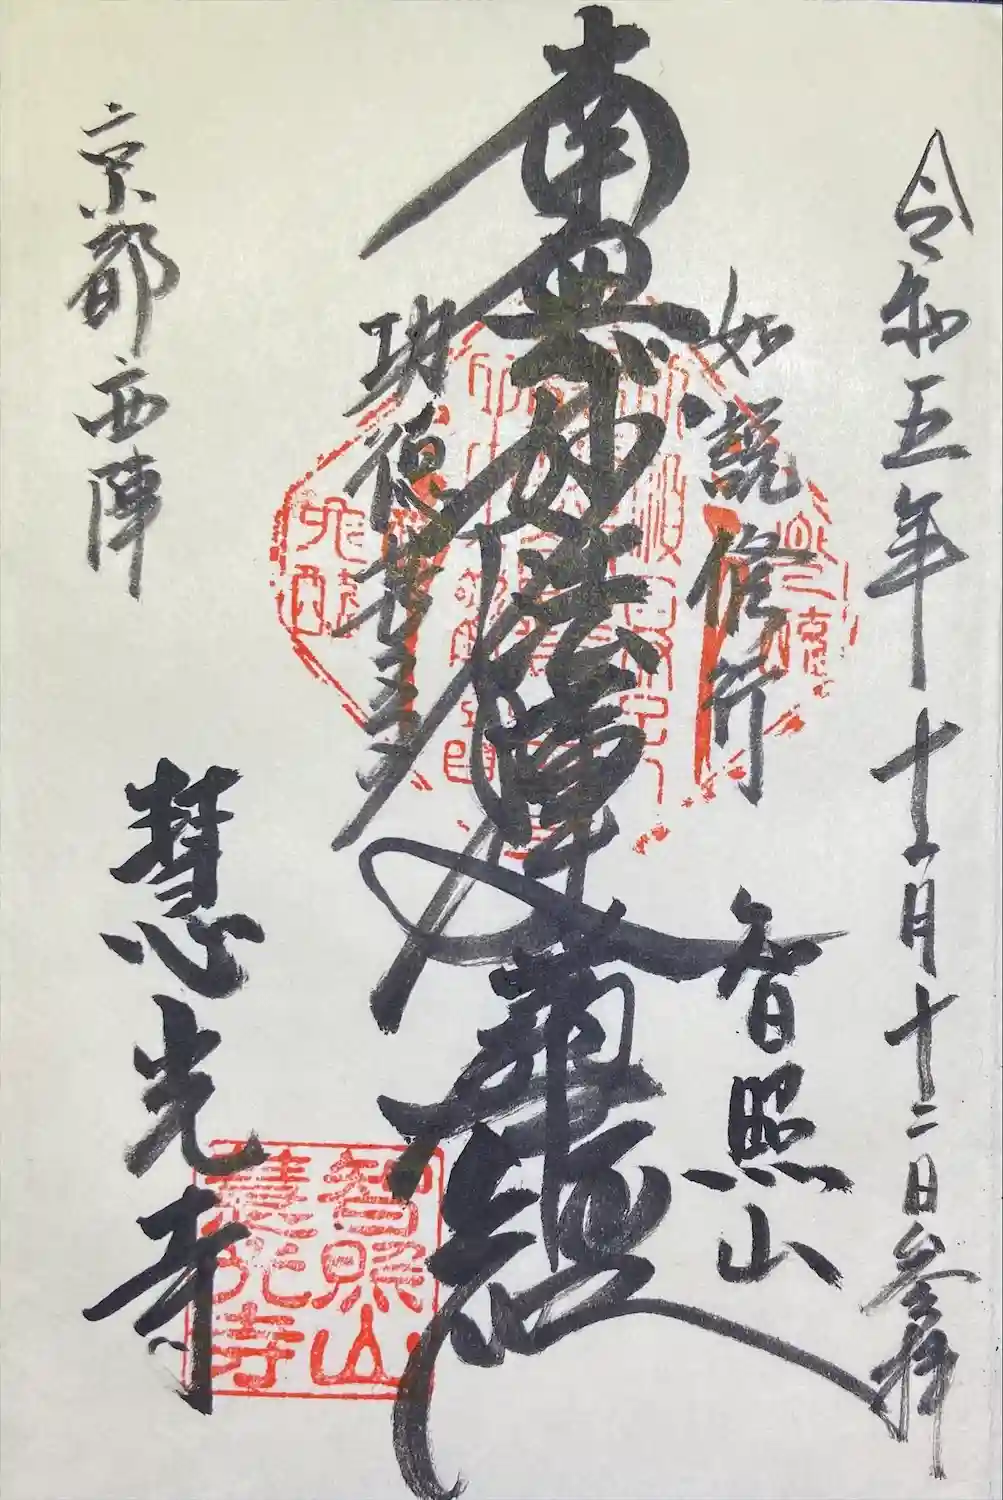 令和五年十一月十二日参拝
智照山
如説修行
南無妙法蓮華経
功徳甚多
京都西陣
慧光寺
智照山
慧光寺